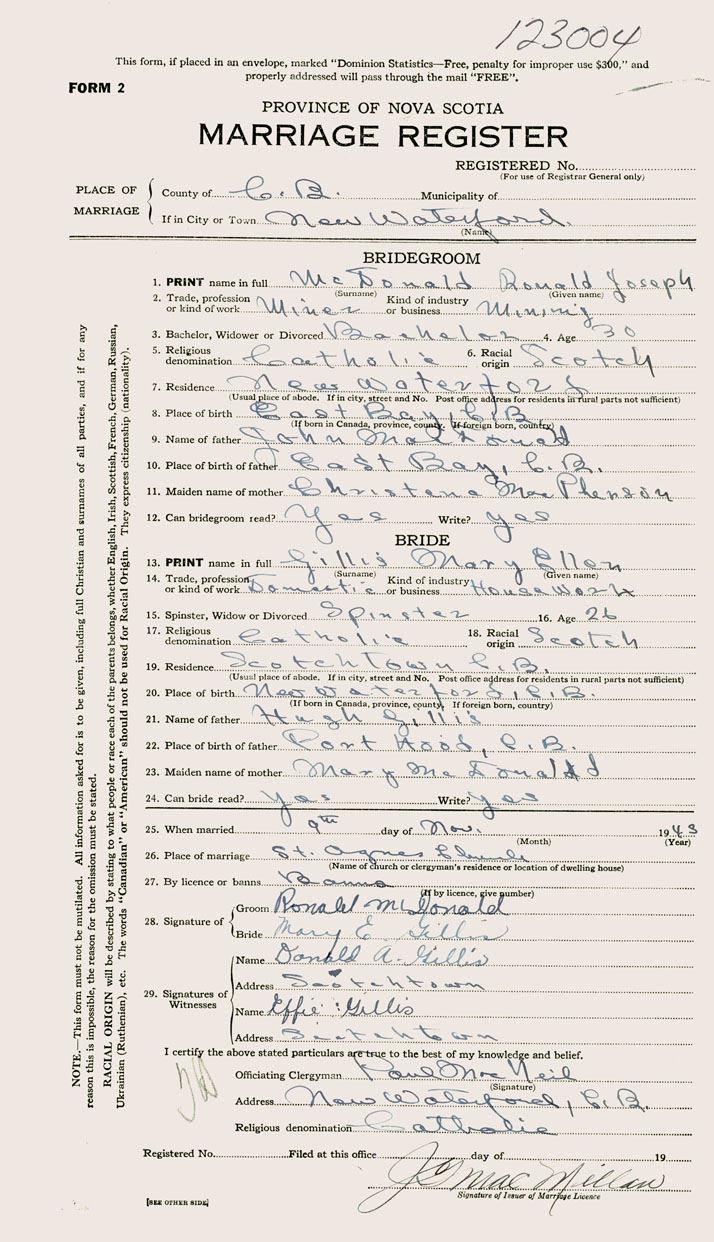 123004
This form, if placed in an envelope, marked "Dominion Statistics—Free, penalty for improper use $300," and
properly addressed will pass through the mail "FREE".
FORM 2
PROVINCE OF NOVA SCOTIA
MARRIAGE REGISTER
REGISTERED No.
(For use of Registrar General only)
PLACE OF MARRIAGE
County of C. B. Municipality of
If in City or Town New Waterford.
(Name)
BRIDEGROOM
1. PRINT name in full McDonald Ronald Joseph
(Surname) (Given name)
2. Trade, profession or kind of work Miner Kind of industry or business Mining
3. Bachelor, Widower or Divorced Bachelor 4. Age 30
5. Religious denomination Catholic 6. Racial origin Scotch
7. Residence New Waterford
(Usual place of abode. If in city, street and No. Post office address for residents in rural parts not sufficient)
8. Place of birth East Bay, C.B.
(If born in Canada, province, county. If foreign born, country)
9. Name of father John MacDonald
10. Place of birth of father East Bay, C.B.
11. Maiden name of mother Christena MacPherson
12. Can bridegroom read? Yes Write? yes
BRIDE
13. PRINT name in full Gillis Mary Ellen
(Surname) (Given name)
14. Trade, profession or kind of work Domestic Kind of industry or business House Work
15. Spinster, Widow or Divorced Spinster 16. Age 26
17. Religious denomination Catholic 18. Racial origin Scotch
19. Residence Scotchtown C.B.
(Usual place of abode. If in city, street and No. Post office address for residents in rural parts not sufficient)
20. Place of birth New Waterford, C.B.
(If born in Canada, province, county. If foreign born, country)
21. Name of father Hugh Gillis
22. Place of birth of father Port Hood, C.B.
23. Maiden name of mother Mary McDonald
24. Can bride read? yes Write? yes
25. When married 9th day of Nov. 1943
(Month) (Year)
26. Place of marriage St. Agnes Church
(Name of church or clergyman's residence or location of dwelling house)
27. By licence or banns Banns
(If by licence, give number)
28. Signature of
Groom Ronald McDonald
Bride Mary E. Gillis
29. Signatures of Witnesses
Name Donald A. Gillis
Address Scotchtown
Name Effie Gillis
Address Scotchtown
I certify the above stated particulars are true to the best of my knowledge and belief.
Officiating Clergyman Paul MacNeil
(Signature)
Address New Waterford, C.B.
Religious denomination Catholic
Registered No. Filed at this office day of 19
J G MacMillan
Signature of Issuer of Marriage Licence
[SEE OTHER SIDE]
NOTE.—This form must not be mutilated. All information asked for is to be given, including full Christian and surnames of all parties, and if for any
reason this is impossible, the reason for the omission must be stated.
RACIAL ORIGIN will be described by stating to what people or race each of the parents belongs, whether English, Irish, Scottish, French, German, Russian,
Ukrainian (Ruthenian), etc. The words "Canadian" or "American" should not be used for Racial Origin. They express citizenship (nationality).